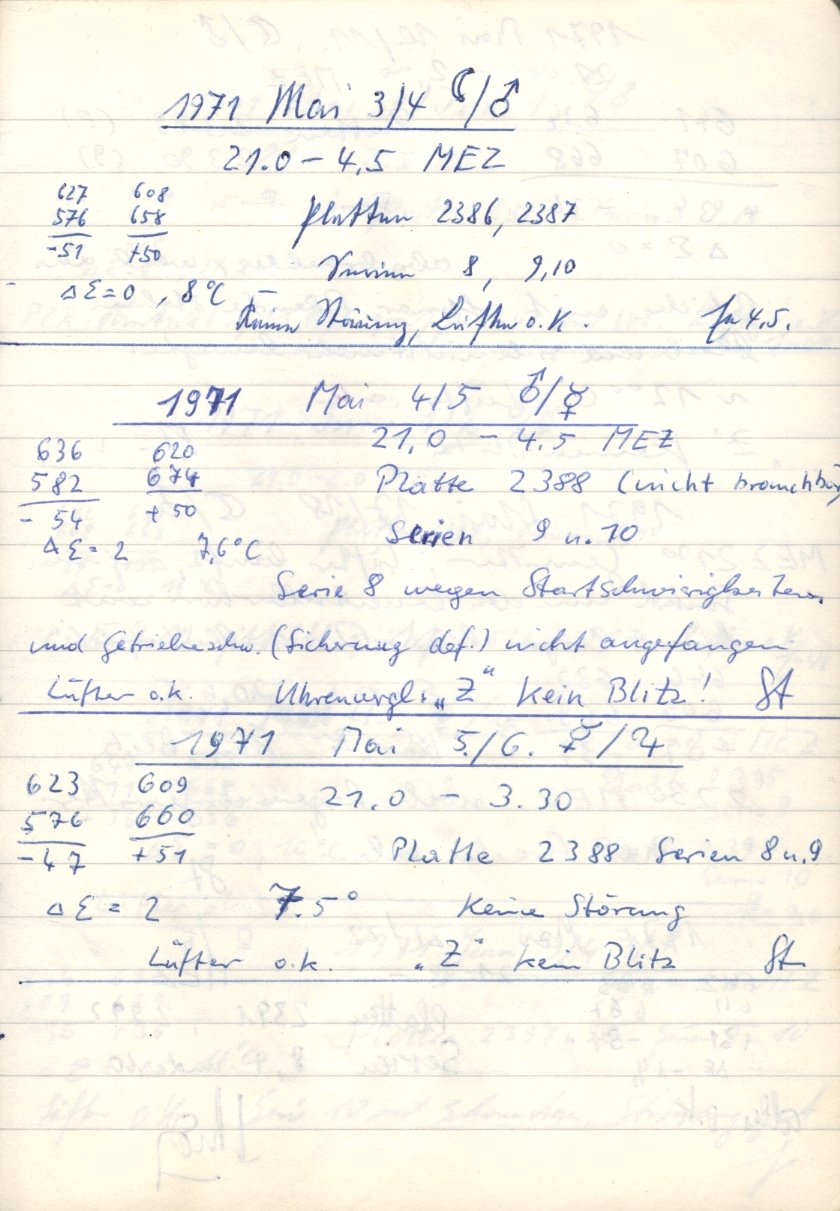 1971 Mai 3/4 ☾/♂
21.0 – 4.5 MEZ
627 608
576 658 Platten 2386, 2387
-51 +50
Serien 8, 9, 10
ΔΣ=0, 8°C
Keine Störung, Lüfter o.k. 4.5.
1971 Mai 4/5 ♂/☿
636 620 21.0 – 4.5 MEZ
582 674 Platte 2388 (nicht brauchbar
- 54 + 50
Serien 9 u. 10
ΔΣ = 2 7,6°C
Serie 8 wegen Startschwierigkeiten
und Getriebeschw. (Sicherung def.) nicht angefangen
Lüfter o.k. Uhrenvergl: „Z“ kein Blitz! St
1971 Mai 5./6. ☿/♃
623 609
576 660 21.0 – 3.30
-47 +51 Platte 2388 Serien 8 u. 9
ΔΣ = 2 7.5° Keine Störung
Lüfter o.k. „Z“ kein Blitz St